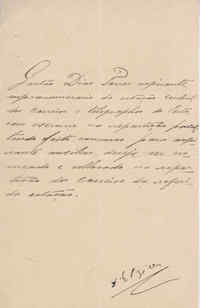 Gastão Dias Torres aspirante
supranumerario da estação central
dos Correios e telegraphos do Porto,
com exame na repartição postal
tendo feito concurso para
auxiliar deseja ser no-
meado e collocado na repar-
tição dos Correios da referi-
da estação.